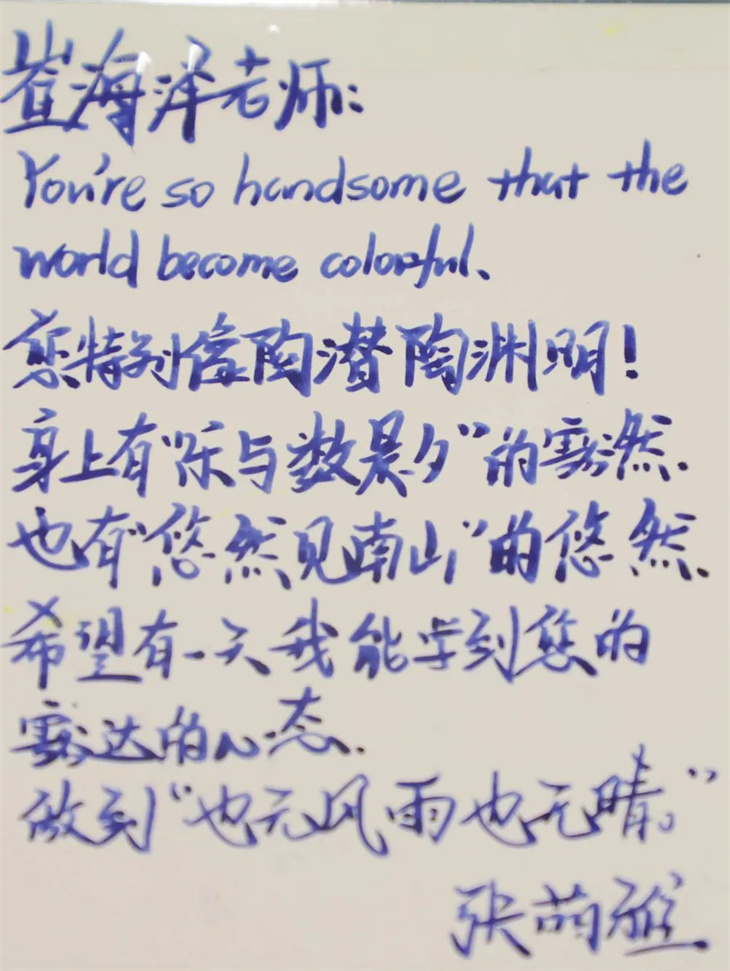 崔海泽老师:
You're so handsome that the
world become colorful、
您特别像陶潜陶渊明!
身上有“乐与数晨夕”的豁然.
也有“悠然见南山”的悠然.
希望有一天我能学到您的
豁达的心态.
做到“也无风雨也无晴。”
张萌雅